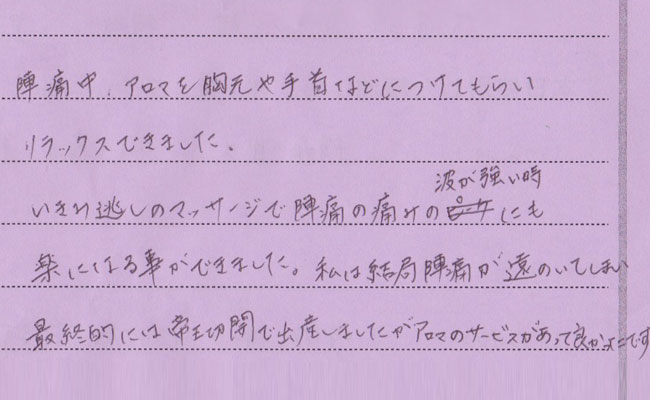 陣痛中、アロマを胸元や手首などにつけてもらい
リラックスできました。
波が強い時
いきみ逃しのマッサージで陣痛の痛みの にも
楽になる事ができました。私は結局陣痛が遠のいてしまい
最終的には帝王切開で出産しましたがアロマのサービスがあって良かったです